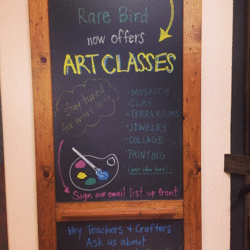 Rare Bird
now offers
ART CLASSES
Stay tuned
for more info
MOSAICS
CLAY
TERRARIUMS
JEWELRY
COLLAGE
PAINTING
(your idea here)
Sign our email list up front
Hey Teachers & Crafters
Ask us about